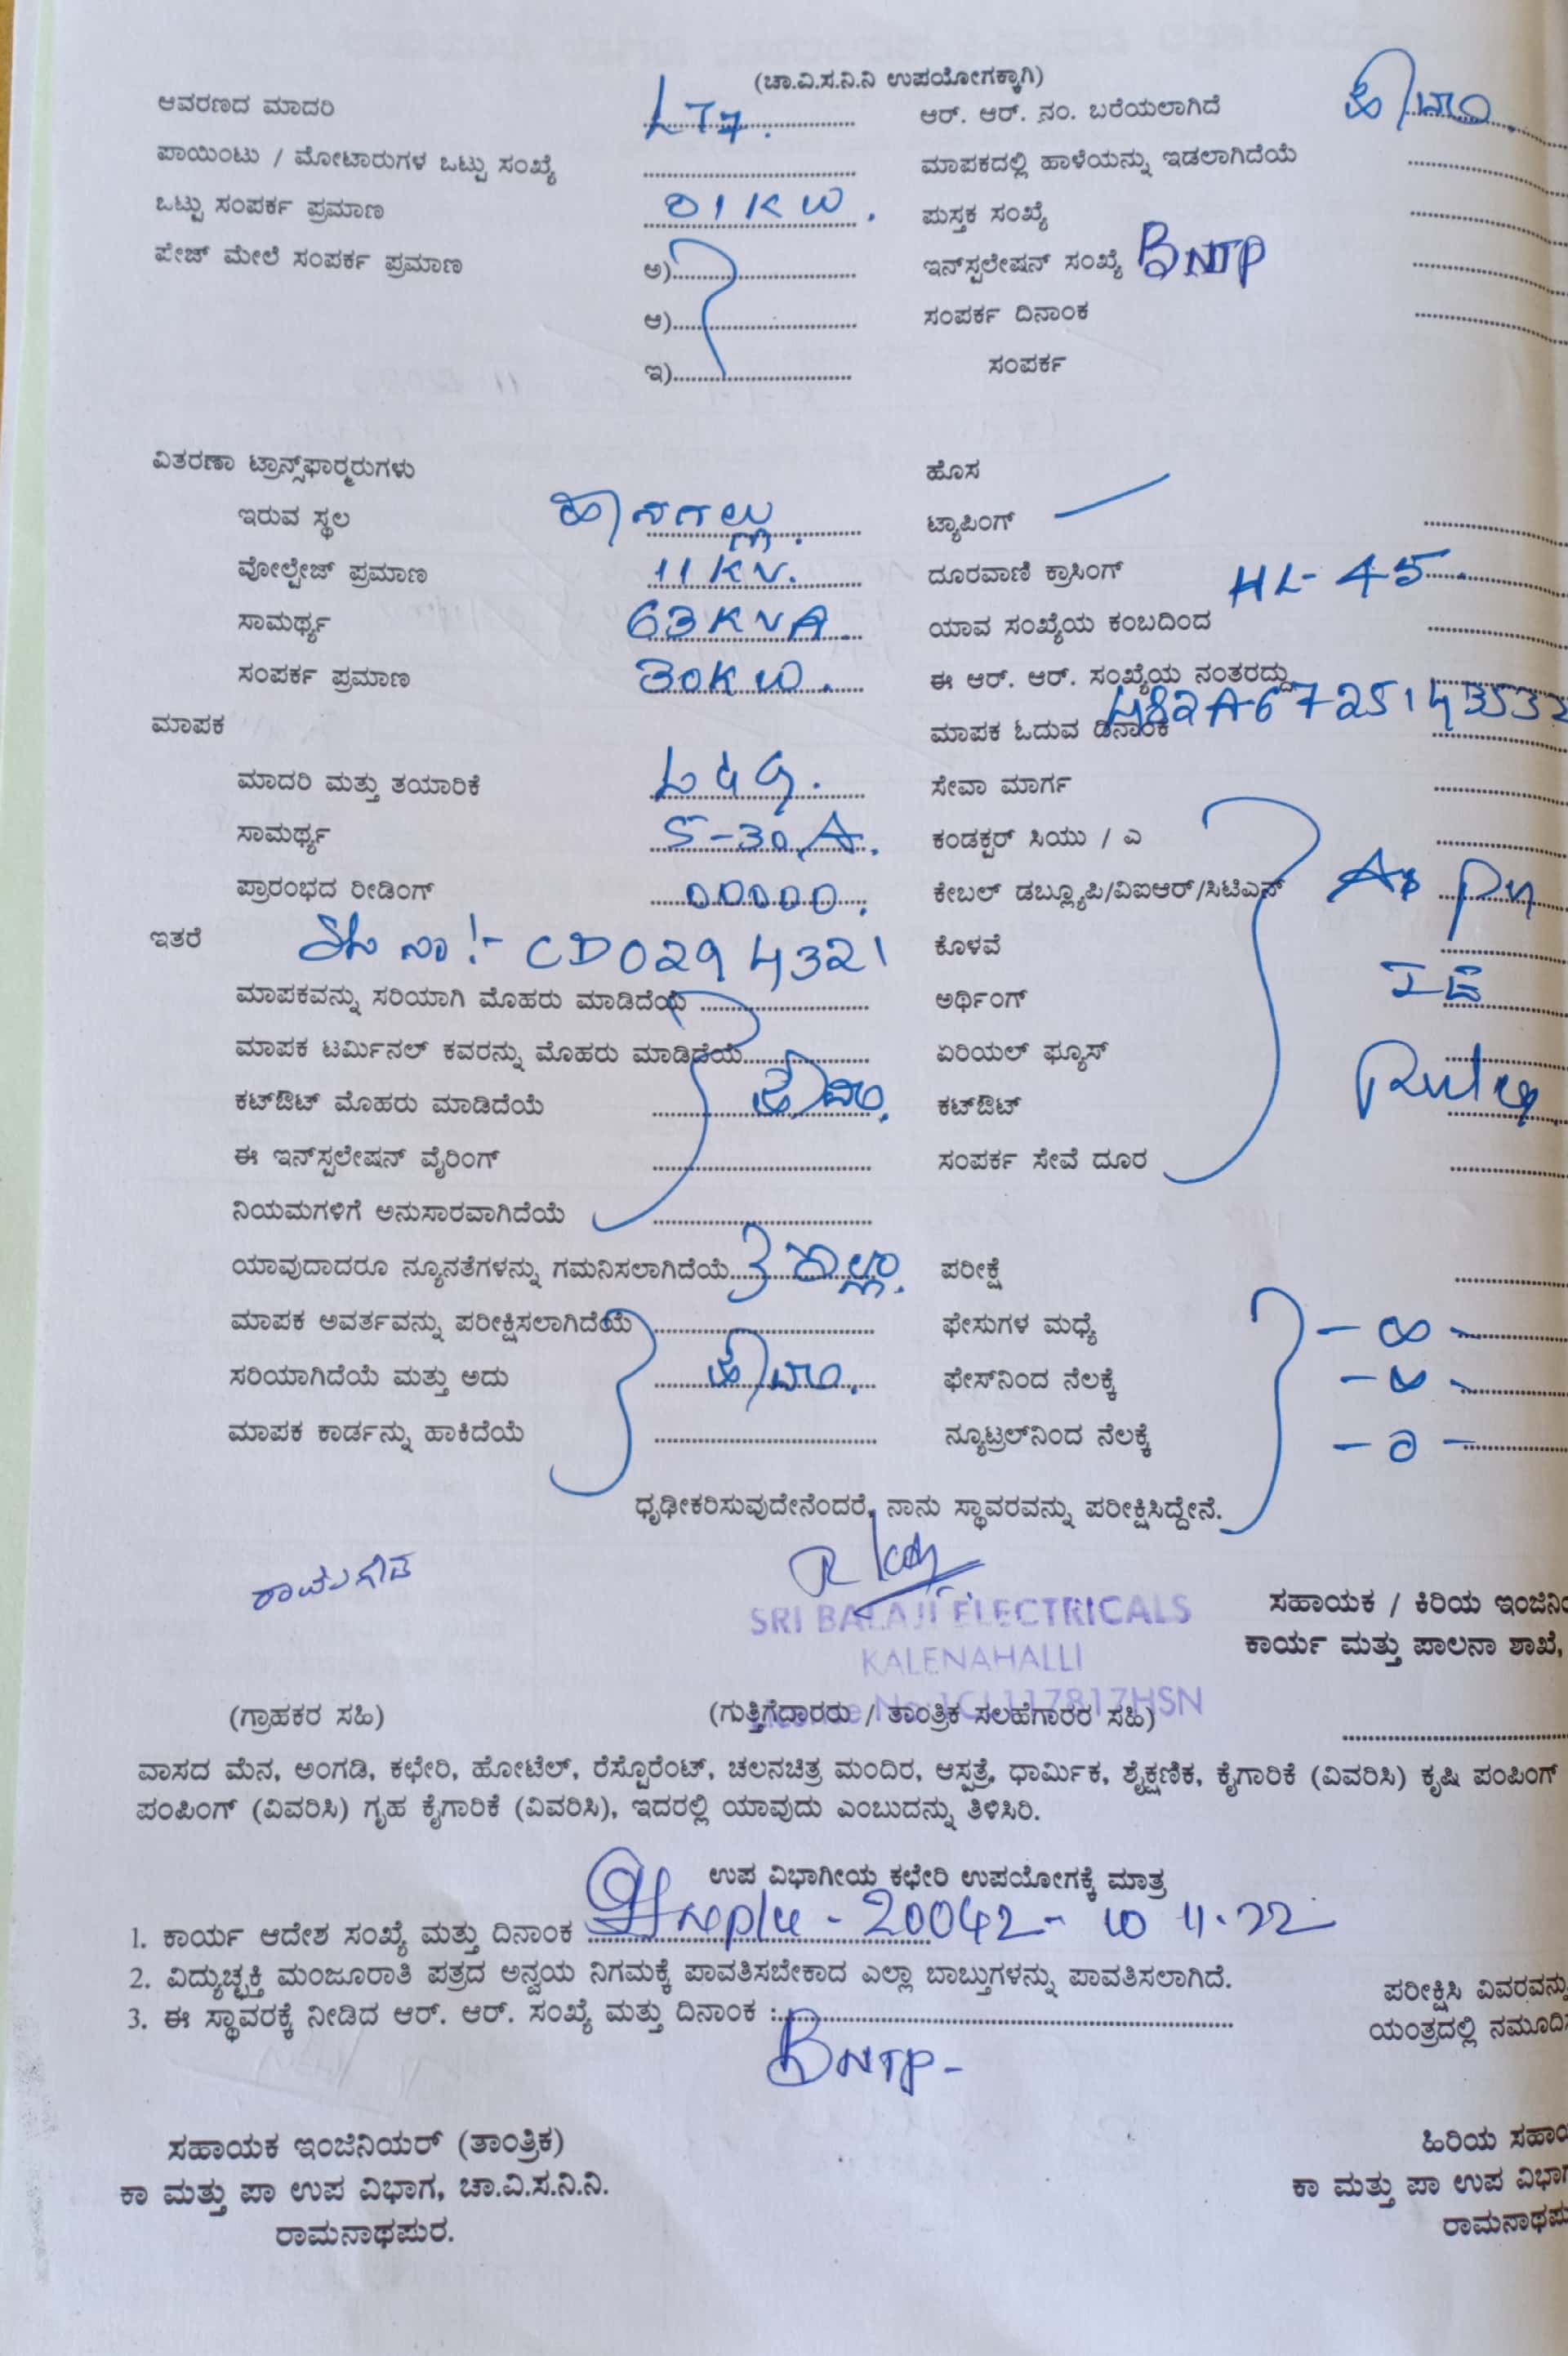 (ಚಾ.ವಿ.ಸ.ನಿ.ನಿ ಉಪಯೋಗಕ್ಕಾಗಿ)
ಆವರಣದ ಮಾದರಿ LT7. ಆರ್. ಆರ್. ನಂ. ಬರೆಯಲಾಗಿದೆ ಹೌದು.
ಪಾಯಿಂಟು / ಮೋಟಾರುಗಳ ಒಟ್ಟು ಸಂಖ್ಯೆ ಮಾಪಕದಲ್ಲಿ ಹಾಳೆಯನ್ನು ಇಡಲಾಗಿದೆಯೆ
ಒಟ್ಟು ಸಂಪರ್ಕ ಪ್ರಮಾಣ 01KW. ಪುಸ್ತಕ ಸಂಖ್ಯೆ
ಫೇಜ್ ಮೇಲೆ ಸಂಪರ್ಕ ಪ್ರಮಾಣ ಅ) ಇನ್‌ಸ್ಟಲೇಷನ್ ಸಂಖ್ಯೆ BNTP
ಆ) ಸಂಪರ್ಕ ದಿನಾಂಕ
ಇ) ಸಂಪರ್ಕ
ವಿತರಣಾ ಟ್ರಾನ್ಸ್‌ಫಾರ್ಮರುಗಳು ಹೊಸ
ಇರುವ ಸ್ಥಲ ಹಾನಗಲ್ಲು. ಟ್ಯಾಪಿಂಗ್
ವೋಲ್ಟೇಜ್ ಪ್ರಮಾಣ 11KV. ದೂರವಾಣಿ ಕ್ರಾಸಿಂಗ್ HL-45
ಸಾಮರ್ಥ್ಯ 63KVA. ಯಾವ ಸಂಖ್ಯೆಯ ಕಂಬದಿಂದ
ಸಂಪರ್ಕ ಪ್ರಮಾಣ 30KW. ಈ ಆರ್. ಆರ್. ಸಂಖ್ಯೆಯ ನಂತರದ್ದು
ಮಾಪಕ ಮಾಪಕ ಓದುವ ದಿನಾಂಕ 482A6725143533
ಮಾದರಿ ಮತ್ತು ತಯಾರಿಕೆ L&G. ಸೇವಾ ಮಾರ್ಗ
ಸಾಮರ್ಥ್ಯ 5-30A. ಕಂಡಕ್ಟರ್ ಸಿಯು / ಎ
ಪ್ರಾರಂಭದ ರೀಡಿಂಗ್ 00000. ಕೇಬಲ್ ಡಬ್ಲ್ಯೂಪಿ/ವಿಐಆರ್/ಸಿಟಿಎಸ್ As per
ಇತರೆ CD0294321 ಕೊಳವೆ
ಮಾಪಕವನ್ನು ಸರಿಯಾಗಿ ಮೊಹರು ಮಾಡಿದೆಯೆ ಅರ್ಥಿಂಗ್ IE
ಮಾಪಕ ಟರ್ಮಿನಲ್ ಕವರನ್ನು ಮೊಹರು ಮಾಡಿದೆಯೆ ಏರಿಯಲ್ ಫ್ಯೂಸ್
ಕಟ್‌ಔಟ್ ಮೊಹರು ಮಾಡಿದೆಯೆ ಹೌದು. ಕಟ್‌ಔಟ್ Rules
ಈ ಇನ್‌ಸ್ಟಲೇಷನ್ ವೈರಿಂಗ್ ಸಂಪರ್ಕ ಸೇವೆ ದೂರ
ನಿಯಮಗಳಿಗೆ ಅನುಸಾರವಾಗಿದೆಯೆ
ಯಾವುದಾದರೂ ನ್ಯೂನತೆಗಳನ್ನು ಗಮನಿಸಲಾಗಿದೆಯೆ ಇಲ್ಲ. ಪರೀಕ್ಷೆ
ಮಾಪಕ ಅವರ್ತವನ್ನು ಪರೀಕ್ಷಿಸಲಾಗಿದೆಯೆ ಫೇಸುಗಳ ಮಧ್ಯೆ - ∞ -
ಸರಿಯಾಗಿದೆಯೆ ಮತ್ತು ಅದು ಹೌದು. ಫೇಸ್‌ನಿಂದ ನೆಲಕ್ಕೆ - ∞ -
ಮಾಪಕ ಕಾರ್ಡನ್ನು ಹಾಕಿದೆಯೆ ನ್ಯೂಟ್ರಲ್‌ನಿಂದ ನೆಲಕ್ಕೆ - 0 -
ಧೃಢೀಕರಿಸುವುದೇನೆಂದರೆ, ನಾನು ಸ್ಥಾವರವನ್ನು ಪರೀಕ್ಷಿಸಿದ್ದೇನೆ.
SRI BALAJI ELECTRICALS
KALENAHALLI
ಸಹಾಯಕ / ಕಿರಿಯ
ಕಾರ್ಯ ಮತ್ತು ಪಾಲನಾ ಶಾಖೆ,
(ಗ್ರಾಹಕರ ಸಹಿ) (ಗುತ್ತಿಗೆದಾರರು / ತಾಂತ್ರಿಕ ಸಲಹೆಗಾರರ ಸಹಿ)
ವಾಸದ ಮೆನ, ಅಂಗಡಿ, ಕಛೇರಿ, ಹೋಟೆಲ್, ರೆಸ್ಟೊರೆಂಟ್, ಚಲನಚಿತ್ರ ಮಂದಿರ, ಆಸ್ಪತ್ರೆ, ಧಾರ್ಮಿಕ, ಶೈಕ್ಷಣಿಕ, ಕೈಗಾರಿಕೆ (ವಿವರಿಸಿ) ಕೃಷಿ ಪಂಪಿಂಗ್
ಪಂಪಿಂಗ್ (ವಿವರಿಸಿ) ಗೃಹ ಕೈಗಾರಿಕೆ (ವಿವರಿಸಿ), ಇದರಲ್ಲಿ ಯಾವುದು ಎಂಬುದನ್ನು ತಿಳಿಸಿರಿ.
ಉಪ ವಿಭಾಗೀಯ ಕಛೇರಿ ಉಪಯೋಗಕ್ಕೆ ಮಾತ್ರ
1. ಕಾರ್ಯ ಆದೇಶ ಸಂಖ್ಯೆ ಮತ್ತು ದಿನಾಂಕ
2. ವಿದ್ಯುಚ್ಛಕ್ತಿ ಮಂಜೂರಾತಿ ಪತ್ರದ ಅನ್ವಯ ನಿಗಮಕ್ಕೆ ಪಾವತಿಸಬೇಕಾದ ಎಲ್ಲಾ ಬಾಬ್ತುಗಳನ್ನು ಪಾವತಿಸಲಾಗಿದೆ.
ಪರೀಕ್ಷಿಸಿ ವಿವರವನ್ನು
3. ಈ ಸ್ಥಾವರಕ್ಕೆ ನೀಡಿದ ಆರ್. ಆರ್. ಸಂಖ್ಯೆ ಮತ್ತು ದಿನಾಂಕ :
ಯಂತ್ರದಲ್ಲಿ
BNTP-
ಸಹಾಯಕ ಇಂಜಿನಿಯರ್ (ತಾಂತ್ರಿಕ) ಹಿರಿಯ
ಕಾ ಮತ್ತು ಪಾ ಉಪ ವಿಭಾಗ, ಚಾ.ವಿ.ಸ.ನಿ.ನಿ. ಕಾ ಮತ್ತು ಪಾ ಉಪ
ರಾಮನಾಥಪುರ.